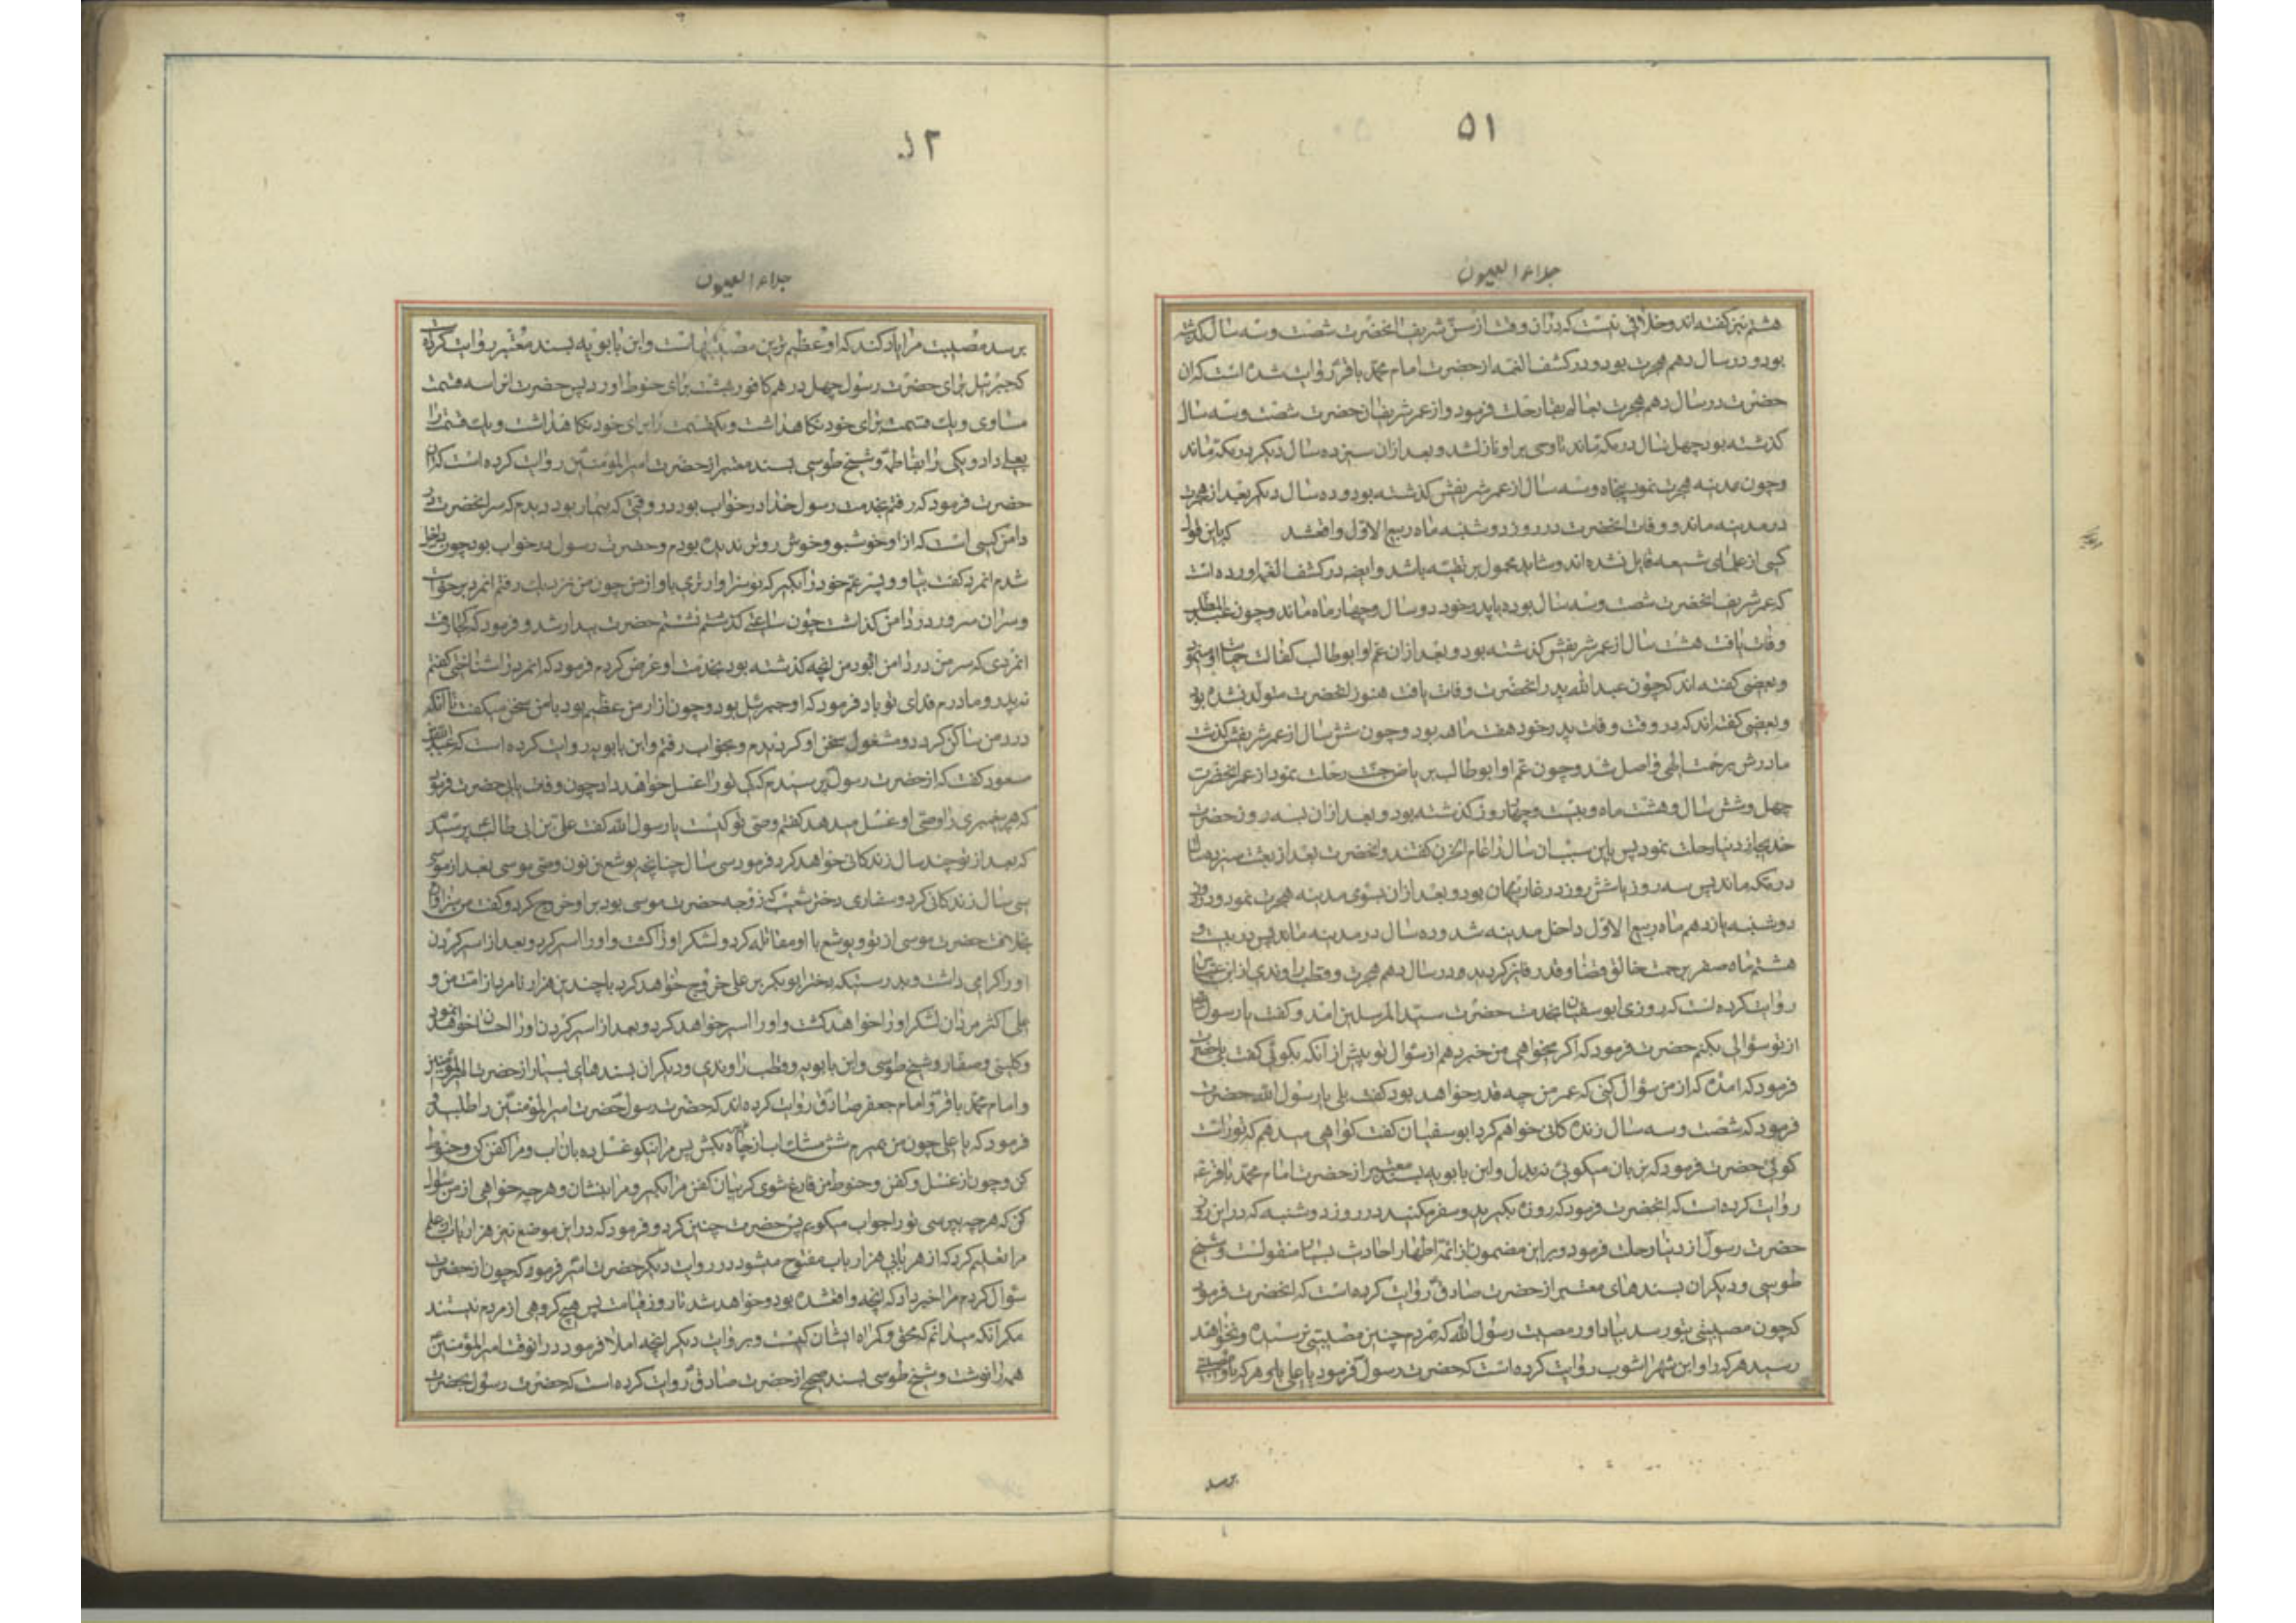 ۵۱
جلاء العیون
هشتم نیز گفته اند و خلافی نیست که در ان وقت از سن شریف انحضرت شصت و سه سال گذشته
بود و در سال دهم هجرت بود و در کشف الغمه از حضرت امام محمد باقر روایت شده است که ان
حضرت در سال دهم هجرت بعالم بقا رحلت فرمود و از عمر شریف ان حضرت شصت و سه سال
گذشته بود چهل سال در مکه ماند تا وحی بر او نازل شد و بعد از ان سیزده سال دیگر در مکه ماند
و چون بمدینه هجرت نمود پنجاه و سه سال از عمر شریفش گذشته بود و ده سال دیگر بعد از هجرت
در مدینه ماند و وفات انحضرت در روز دوشنبه ماه ربیع الاول واقع شد که باین قول
کسی از علمای شیعه قایل نشده اند و شاید محمول بر تقیه باشد و ایضا در کشف الغمه اورده است
که عمر شریف انحضرت شصت و سه سال بوده با پدر خود دو سال و چهار ماه ماند و چون عبد المطلب
وفات یافت هشت سال از عمر شریفش گذشته بود و بعد از ان عم او ابوطالب کفالت و حمایت او مینمود
و بعضی گفته اند که چون عبد الله پدر انحضرت وفات یافت هنوز انحضرت متولد نشده بود
و بعضی گفته اند که در وقت وفات پدر خود هفت ماهه بود و چون شش سال از عمر شریفش گذشت
مادرش برحمت الهی واصل شد و چون عم او ابوطالب بریاض جنت رحلت نمود از عمر انحضرت
چهل و شش سال و هشت ماه و بیست و چهار روز گذشته بود و بعد از ان بسه روز حضرت
خدیجه از دنیا رحلت نمود پس باین سبب ان سال را عام الحزن گفتند و انحضرت بعد از بعثت سیزده سال
در مکه ماند پس سه روز یا شش روز در غار پنهان بود و بعد از ان بسوی مدینه هجرت نمود و در روز
دوشنبه یازدهم ماه ربیع الاول داخل مدینه شد و ده سال در مدینه ماند پس در بیست و
هشتم ماه صفر برحمت خالق قضا و قدر فایز گردید و در سال دهم هجرت و قطب راوندی از ابن عباس
روایت کرده است که روزی ابوسفیان بخدمت حضرت سید المرسلین امد و گفت یا رسول الله
از تو سؤالی بکنم حضرت فرمود که اگر میخواهی من خبر دهم از سؤال تو پیش از آنکه بگوئی گفت بلی حضرت
فرمود که امده که از من سؤال کنی که عمر من چه قدر خواهد بود گفت بلی یا رسول الله حضرت
فرمود که شصت و سه سال زندگانی خواهم کرد ابوسفیان گفت گواهی میدهم که تو راست
گوئی حضرت فرمود که بزبان میگوئی نه بدل و ابن بابویه بسند معتبر از حضرت امام محمد باقر
روایت کرده است که انحضرت فرمود که روزه بگیرید و سفر مکنید در روز دوشنبه که در این روز
حضرت رسول از دنیا رحلت فرمود و بر این مضمون از ائمه اطهار احادیث بسیار منقولست و شیخ
طوسی و دیگران بسندهای معتبر از حضرت صادق روایت کرده است که انحضرت فرمود
که چون مصیبتی بتو رسد بیاد اور مصیبت رسول الله که مردم چنین مصیبتی نرسیده و نخواهند
رسید هرگز و ابن شهراشوب روایت کرده است که حضرت رسول فرمود یا علی هر که باو مصیبتی
برسد
۵۲
جلاء العیون
برسد مصیبت مرا یاد کند که او عظیم ترین مصیبتهاست و ابن بابویه بسند معتبر روایت کرده
که جبرئیل برای حضرت رسول چهل درهم کافور بهشت برای حنوط اورد پس حضرت انرا سه قسمت
مساوی و یک قسمت برای خود نگاهداشت و یک قسمت را
بعلی داد و یکی را بفاطمه و شیخ طوسی بسند معتبر از حضرت امیر المؤمنین روایت کرده است که ان
حضرت فرمود که رفتم بخدمت رسول خدا در خواب بود در وقتی که بیمار بود دیدم که سر انحضرت در
دامن کسی است که از او خوشبو و خوش روتر ندیده بودم و حضرت رسول در خواب بود چون داخل
شدم انمرد گفت بیا و سر پسر عم خود را بگیر که تو سزاوارتری باو از من چون من نزدیک رفتم انمرد برخواست
و سر ان سرور در دامن گذاشت چون ساعتی گذشت حضرت بیدار شد و فرمود که کجا رفت
انمردی که سر من در دامن او بود من انچه گذشته بود بخدمت او عرض کردم فرمود که انمرد را شناختی گفتم
نه پدر و مادرم فدای تو باد فرمود که او جبرئیل بود و چون ازار من عظیم بود با من سخن میگفت تا انکه
درد من ساکن گردد و مشغول سخن او گردیدم و بخواب رفتم و ابن بابویه روایت کرده است که عبد الله
مسعود گفت که از حضرت رسول پرسیدم که کی تو را غسل خواهد داد چون وفات یابی حضرت فرمود
که هر پیغمبری را وصی او غسل میدهد گفتم وصی تو کیست یا رسول الله گفت علی بن ابی طالب پرسید
که بعد از تو چند سال زندگانی خواهد کرد فرمود سی سال چنانچه یوشع بن نون وصی موسی بعد از موسی
سی سال زندگانی کرد و صفاری دختر شعیب که زوجه حضرت موسی بود بر او خروج کرد و گفت من سزاوارترم
بخلافت حضرت موسی از تو و یوشع با او مقاتله کرد و لشکر او را کشت و او را اسیر کرد و بعد از اسیر کردن
او را گرامی داشت و بدرستیکه دختر ابوبکر بر علی خروج خواهد کرد با چندین هزار نامرد از امت من و
علی اکثر مردان لشکر او را خواهد کشت و او را اسیر خواهد کرد و بعد از اسیر کردن او را احسان خواهد نمود
و کلینی و صفار و شیخ طوسی و ابن بابویه و قطب راوندی و دیگران بسندهای بسیار از حضرت امیر المؤمنین
و امام محمد باقر و امام جعفر صادق روایت کرده اند که حضرت رسول حضرت امیر المؤمنین را طلبید و
فرمود که یا علی چون من بمیرم شش مشک اب از چاه بکش پس مرا نیکو غسل ده بان اب و مرا کفن کن و حنوط
کن و چون از غسل و کفن و حنوط من فارغ شوی گریبان کفن مرا بگیر و مرا بنشان و هر چه خواهی از من سؤال
کن که هر چه بپرسی تو را جواب میگویم پس حضرت چنین کرد و فرمود که در این موضع نیز هزار باب از علم
مرا تعلیم کرد که از هر بابی هزار باب مفتوح میشود در روایت دیگر حضرت امیر فرمود که چون از حضرت
سؤال کردم مرا خبر داد که انچه واقع شده بود و خواهد شد تا روز قیامت پس هیچ گروهی از مردم نیستند
مگر آنکه میدانم که محق و گمراه ایشان کیست و بروایت دیگر انچه املا فرمود در انوقت امیر المؤمنین
همه را نوشت و شیخ طوسی بسند صحیح از حضرت صادق روایت کرده است که حضرت رسول بحضرت